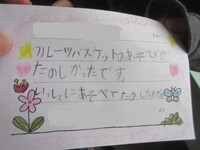 フルーツバスケットのあそびが
たのしかったです。
いっしょにあそべてたのしかったよ